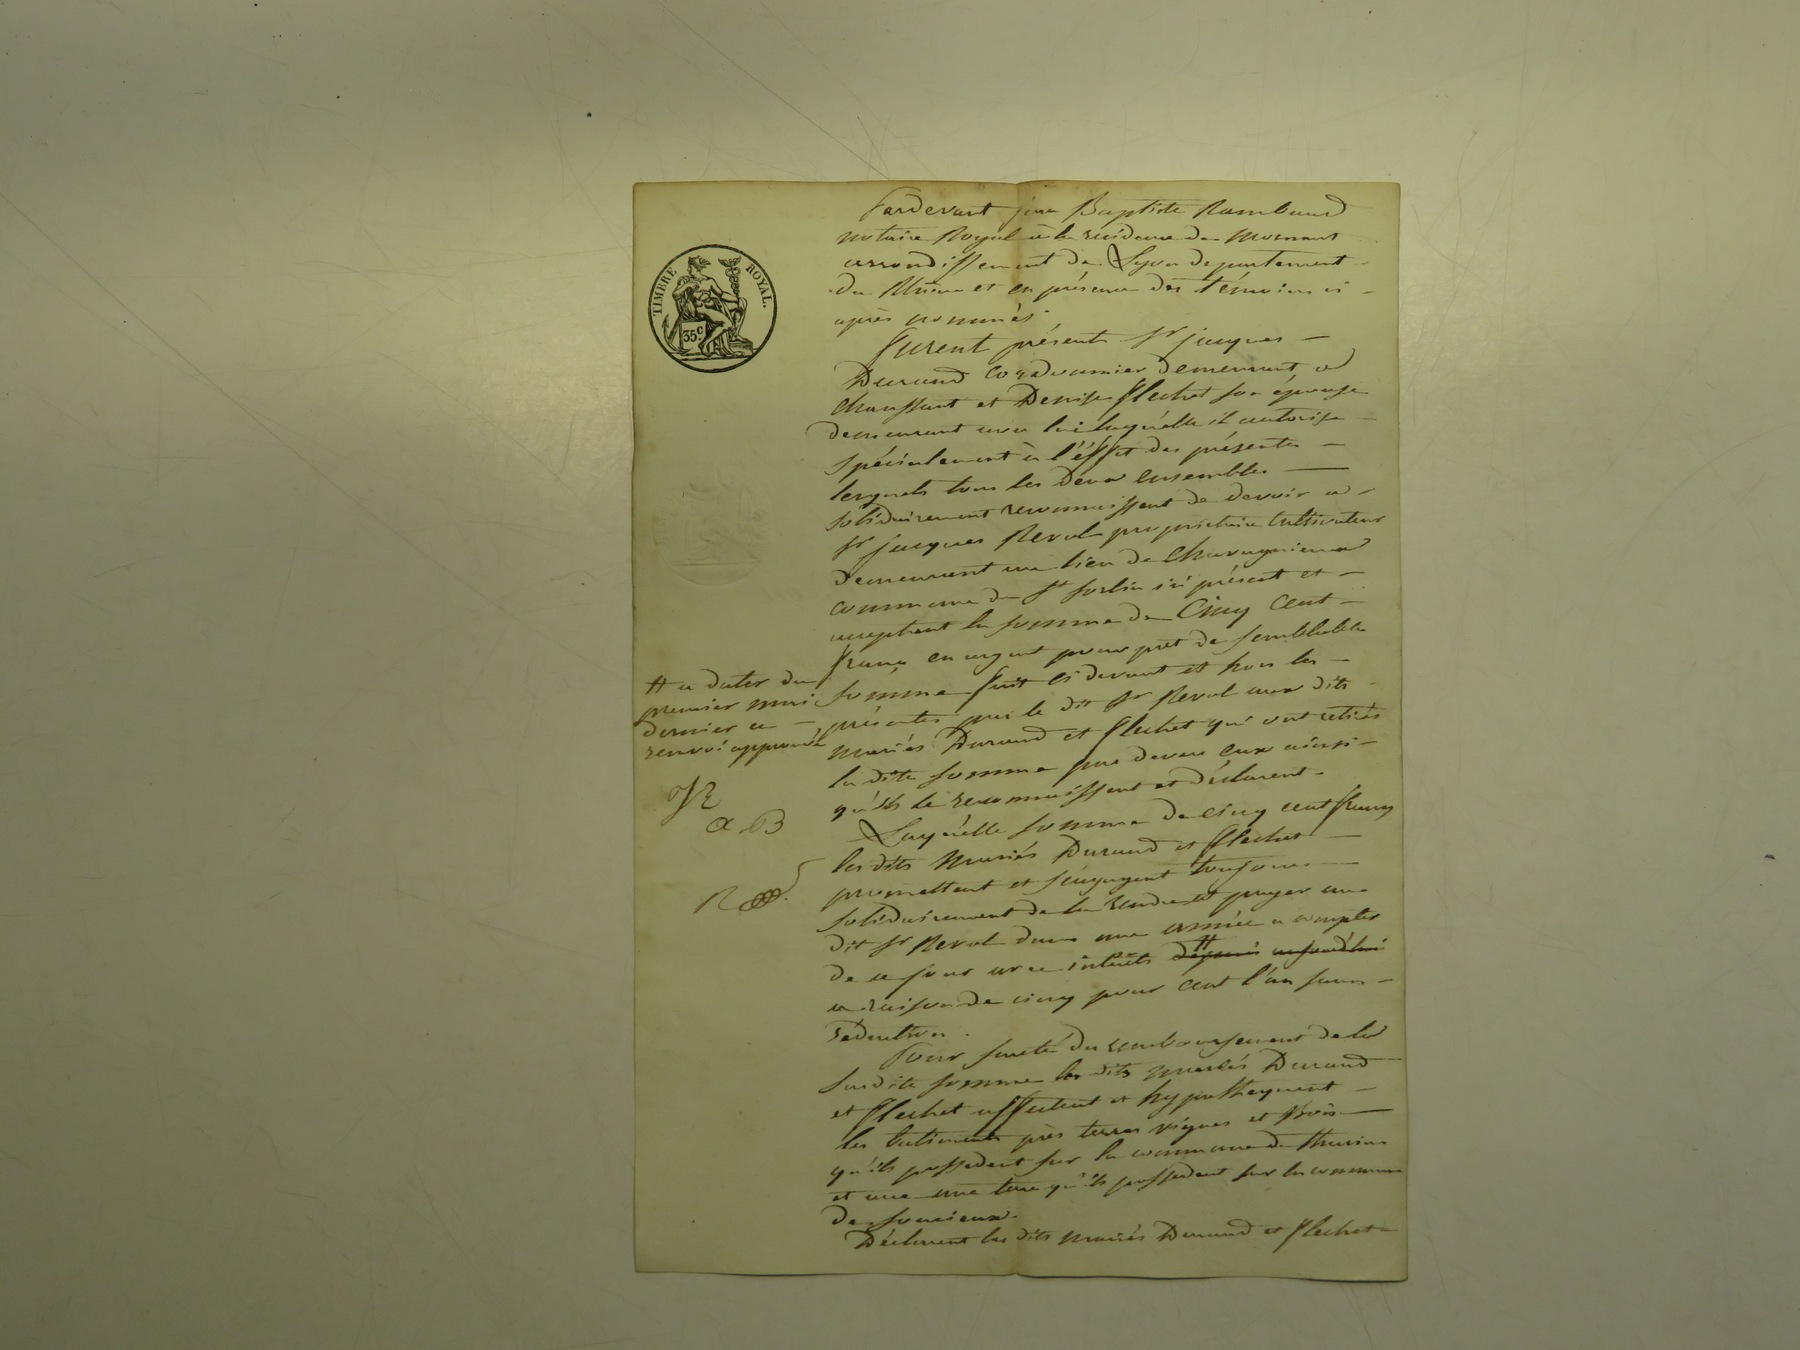 TIMBRE ROYAL.
35 c
Pardevant jean Baptiste Rambaud
notaire Royal à la residence de Mornant
arrondissement de Lyon departement
du Rhône et en présence des témoins ci -
après nommés.
furent présents Sr jacques -
Durand cordonnier demeurant a
Chaussant et Denise flechet son épouse
demeurant avec lui laquélle il autorise -
spécialement à l'éffet des présentes -
lesquels tous les deux ensembles -
solidairement reconnaissent de devoir a -
Sr jacques Revol propriétaire Cultivateur
demeurant au lieu de Chavagnieux
commune de St Sorlin ici présent et -
acceptant la somme de Cinq Cent -
francs en argent pour pret de semblable
somme fait ci devant et hors les -
présentes par le dit Sr Revol aux dits -
mariés Durand et flechet qui ont retirés
la dite somme par devers eux ainsi -
qu'ils le reconnaissent et déclarent.
Laquélle somme de cinq cent francs
les dits mariés Durand et flechet -
promettent et s'engagent toujours -
solidairement de la rendre et payer au
dit Sr Revol dans une année a compter
de ce jour avec intérêts # depuis aujourd'hui
a raison de cinq pour cent l'an sans -
réduction.
Pour sureté du remboursement de la
susdite somme les dits mariés Durand
et flechet affectent et hypothequent -
les batiments près terres vignes et Bois -
qu'ils possedent sur la commune de thurins
et une terre qu'ils possedent sur la commune
de soucieux.
Déclarent les dits mariés Durand et flechet -
# a dater du
premier mai
dernier ce -
renvoi approuvé
JR
a B
R